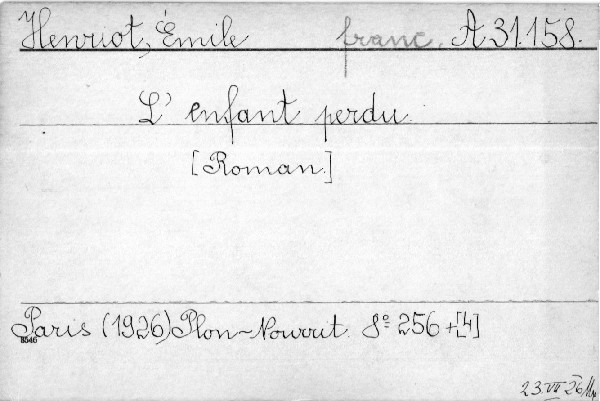 Henriot, Émile franc. A 31.158.
L' enfant perdu.
[Roman.]
Paris (1926) Plon-Nourrit. 8º 256+[4]
8546
23.VII 26